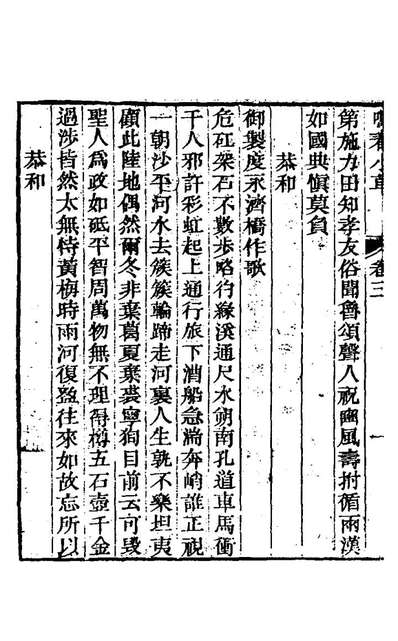 春小草 卷三
第施力田知孝友俗聞魯頌聲人祝豳風壽拊循兩漢
如國典愼莫負
恭和
御製度永濟橋作歌
危矼架石不數步略彴緣溪通尺水朔南孔道車馬衝
千人邪許彩虹起上通行旅下消船急湍奔峭誰正視
一朝沙平河水去簇簇輪蹄走河裏人生孰不樂坦夷
顧此陸地偶然爾冬非棄葛夏棄裘寧徇目前云可毀
聖人爲政如砥平智周萬物無不理得樽五石壺千金
過涉皆然太無恃黃梅時雨河復盈往來如故忘所以
恭和